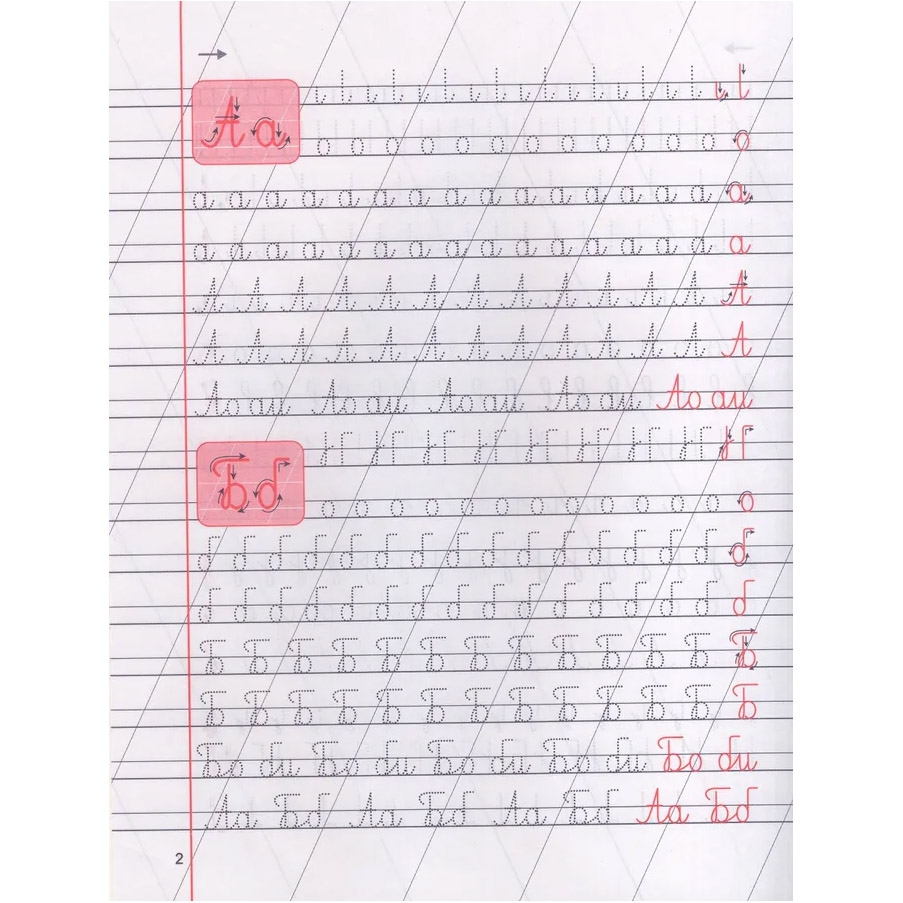 А а
о о о о о о о о о о о о о
а а а а а а а а а а а а а а а а
а а а а а а а а а а а а а а а а
А А А А А А А А А А А А А
А А А А А А А А А А А А А
Ао аи Ао аи Ао аи Ао аи Ао аи
Бб
о о о о о о о о о о о о о
б б б б б б б б б б б б б б б б
б б б б б б б б б б б б б б б б
Б Б Б Б Б Б Б Б Б Б Б Б Б
Б Б Б Б Б Б Б Б Б Б Б Б Б
Бо би Бо би Бо би Бо би Бо би
Аа Бб Аа Бб Аа Бб Аа Бб
2